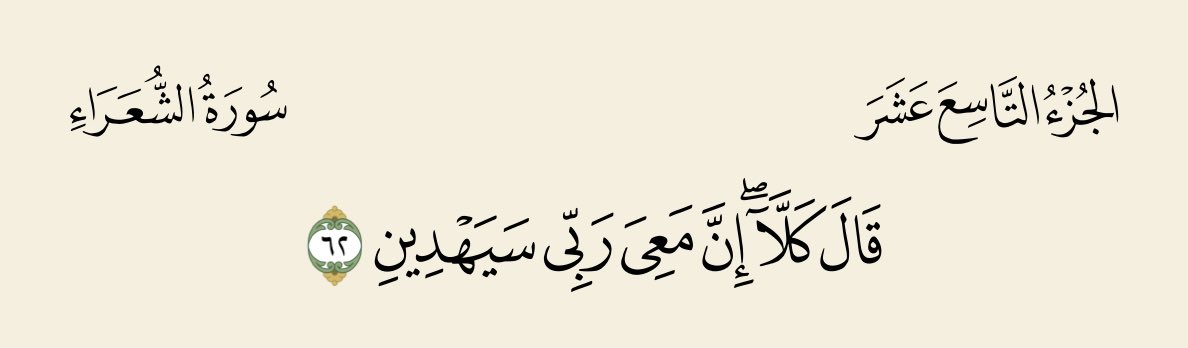 الجُزْءُ التَّاسِعَ عَشَرَ سُورَةُ الشُّعَرَاءِ
قَالَ كَلَّآۖ إِنَّ مَعِيَ رَبِّي سَيَهۡدِينِ ٦٢